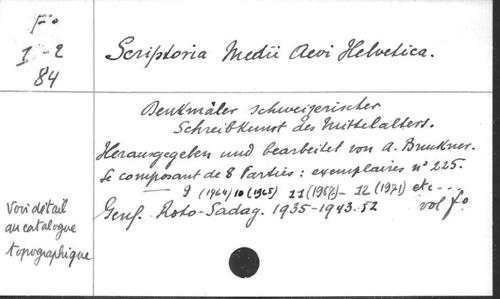 Fo
1-2
84
Scriptoria Medii Aevi Helvetica.
Denkmäler schweizerischer
Schreibkunst des Mittelalters.
Herausgegeben und bearbeitet von A. Bruckner.
Se composant de 8 Parties : exemplaires n° 225.
9 (1964) 10 (1965) 11 (1967) – 12 (1971) etc - - -
Genf. Roto-Sadag. 1935-1943. 52 vol fo.
Voir détail
au catalogue
topographique